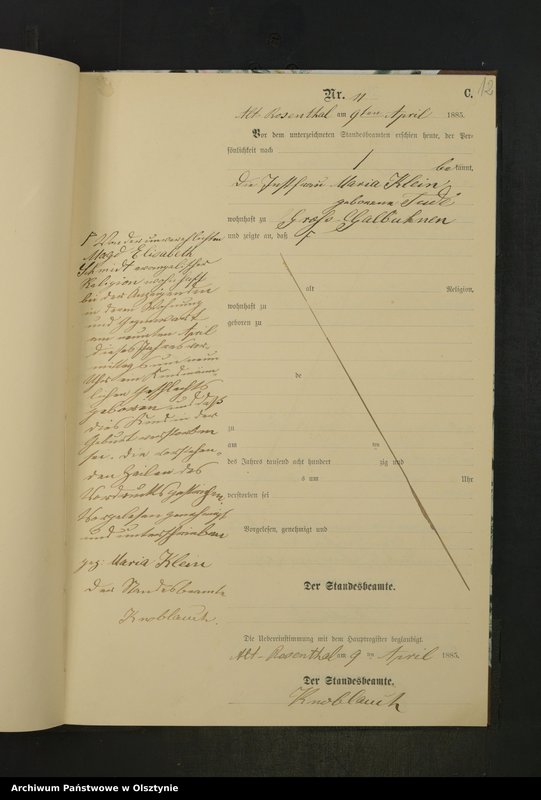 12
Nr. 11
C.
Alt-Rosenthal am 9ten April 1885.
Vor dem unterzeichneten Standesbeamten erschien heute, der Per-
sönlichkeit nach
bekannt,
die Instfrau Maria Klein,
geborene
wohnhaft zu Gross-Galbuhnen
und zeigte an, daß
alt Religion,
wohnhaft zu
geboren zu
de
zu
am ten
des Jahres tausend acht hundert zig und
s um Uhr
verstorben sei
Vorgelesen, genehmigt und
Der Standesbeamte.
Von der unverehelichten
Magd Elisabeth
Schmidt evangelischer
Religion wohnhaft
bei der Anzeigenden
in deren Wohnung
und Gegenwart
am neunten April
dieses Jahres vor-
mittags um neun
Uhr ein Kind männ-
lichen Geschlechts
geboren und daß
dies Kind in der
Geburt verstorben
sei. Die vorstehen-
den Zeilen des
Vordrucks gestrichen.
Vorgelesen genehmigt
und unterschrieben
gez. Maria Klein
Der Standesbeamte
Knoblauch.
Die Uebereinstimmung mit dem Hauptregister beglaubigt.
Alt-Rosenthal am 9 ten April 1885.
Der Standesbeamte.
Knoblauch
Archiwum Państwowe w Olsztynie